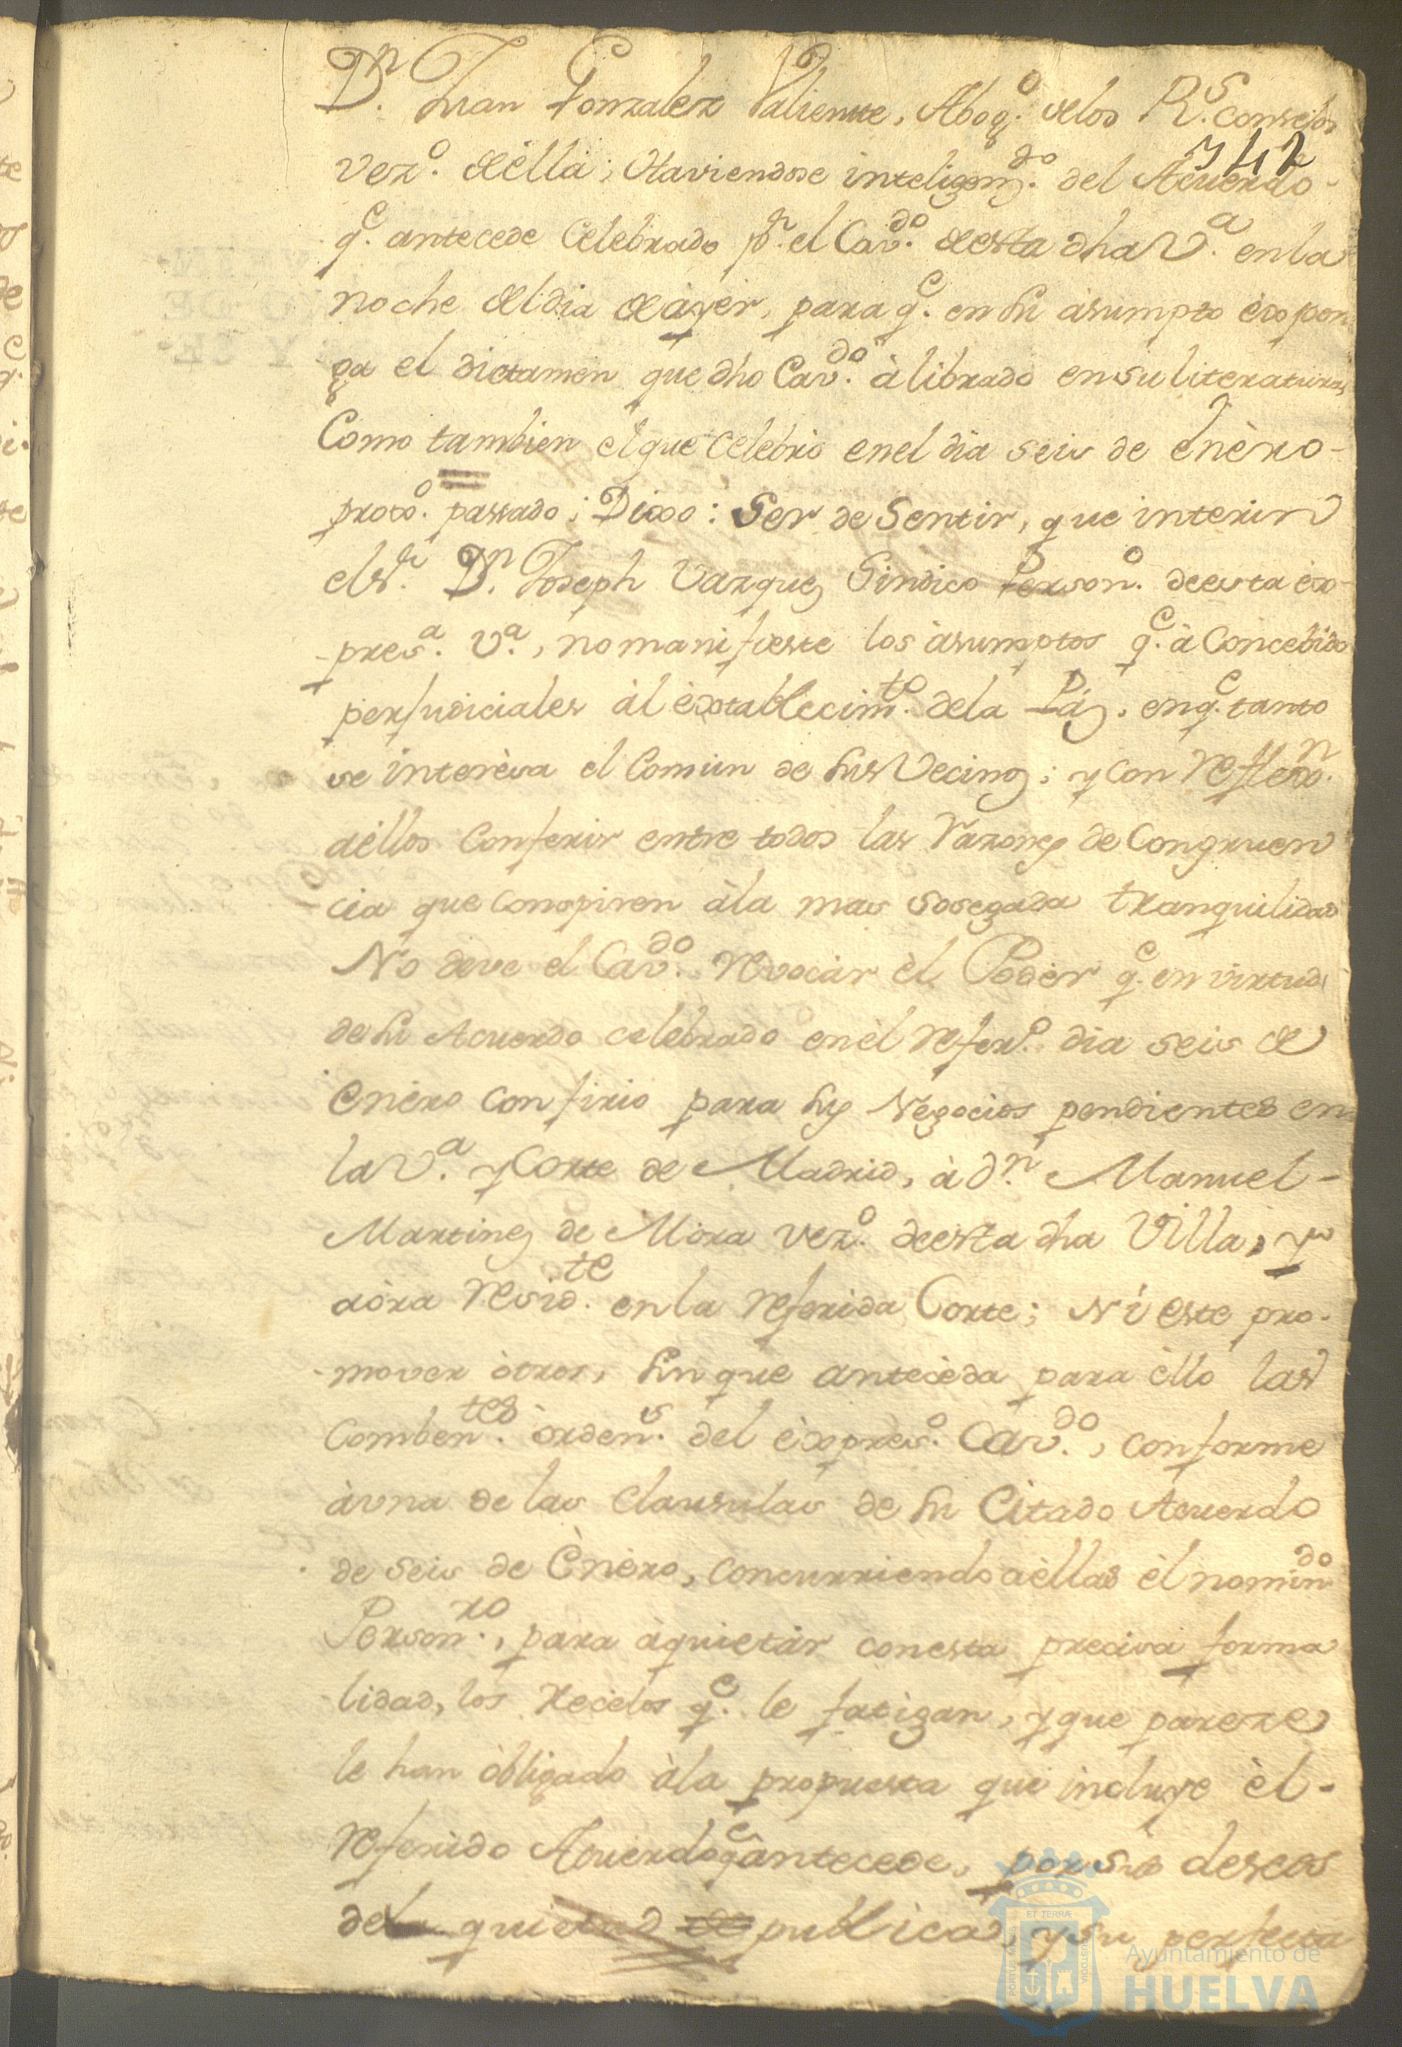 Dn. Juan Gonzalez Valiente, Abogo. delos Rs. consejos
342
vezo. deella; Haviendose inteligendo. del Acuerdo-
qe. antecede Celebrado pr. el Cavdo. deesta dha Va. en la
noche deldia deàyer, para qe. en su àsumpto èxpon
ga el dictamen que dho Cavdo. à librado en su literatura,
Como tambien el que celebrò en el dia seis de Enèro-
proxo. passado; Dixo: Ser de Sentir, que interin
el sr. Dn. Joseph Vazquez Sindico Persono. deesta èx-
presa. va., no manifieste los àsumptos qe. à Concebido
perjudiciales àl èxtablecimto. dela Paz. en qe. tanto
se interèsa el Comun de sus Vecinos; y con reflexn.
aèllos Conferir entre todos las razones de Congruen
cia que conspiren àla mas sosegada tranquilidad
No deve el Cavdo. revocàr èl Podèr qe. en virtud
de su Acuerdo celebrado en èl refero. dia seis de
Enèro confirio para sus Negocios pendientes en
la Va. y Corte de Madrid, à dn. Manuel-
Martinez de Mora vezo. deesta dha Villa, y
aòra residte. en la referida Corte; Ni este pro-
mover òtros, sin que antecèda para èllo las
Combentes. òrdens. del èxpreso. Cavdo., conforme
àuna de las Clausulas de su Citado Acuerdo
de seis de Enèro, concurriendo aèllas èl nomindo.
Personro., para àquietàr con esta precisa forma
lidad, los recelos qe. le fatigan, y que pareze
le han òbligado àla propuesta que incluye èl-
referido Acuerdo qe antecede, por sus deseos
dela quietud publica, y su perfecta
Ayuntamiento de
HUELVA